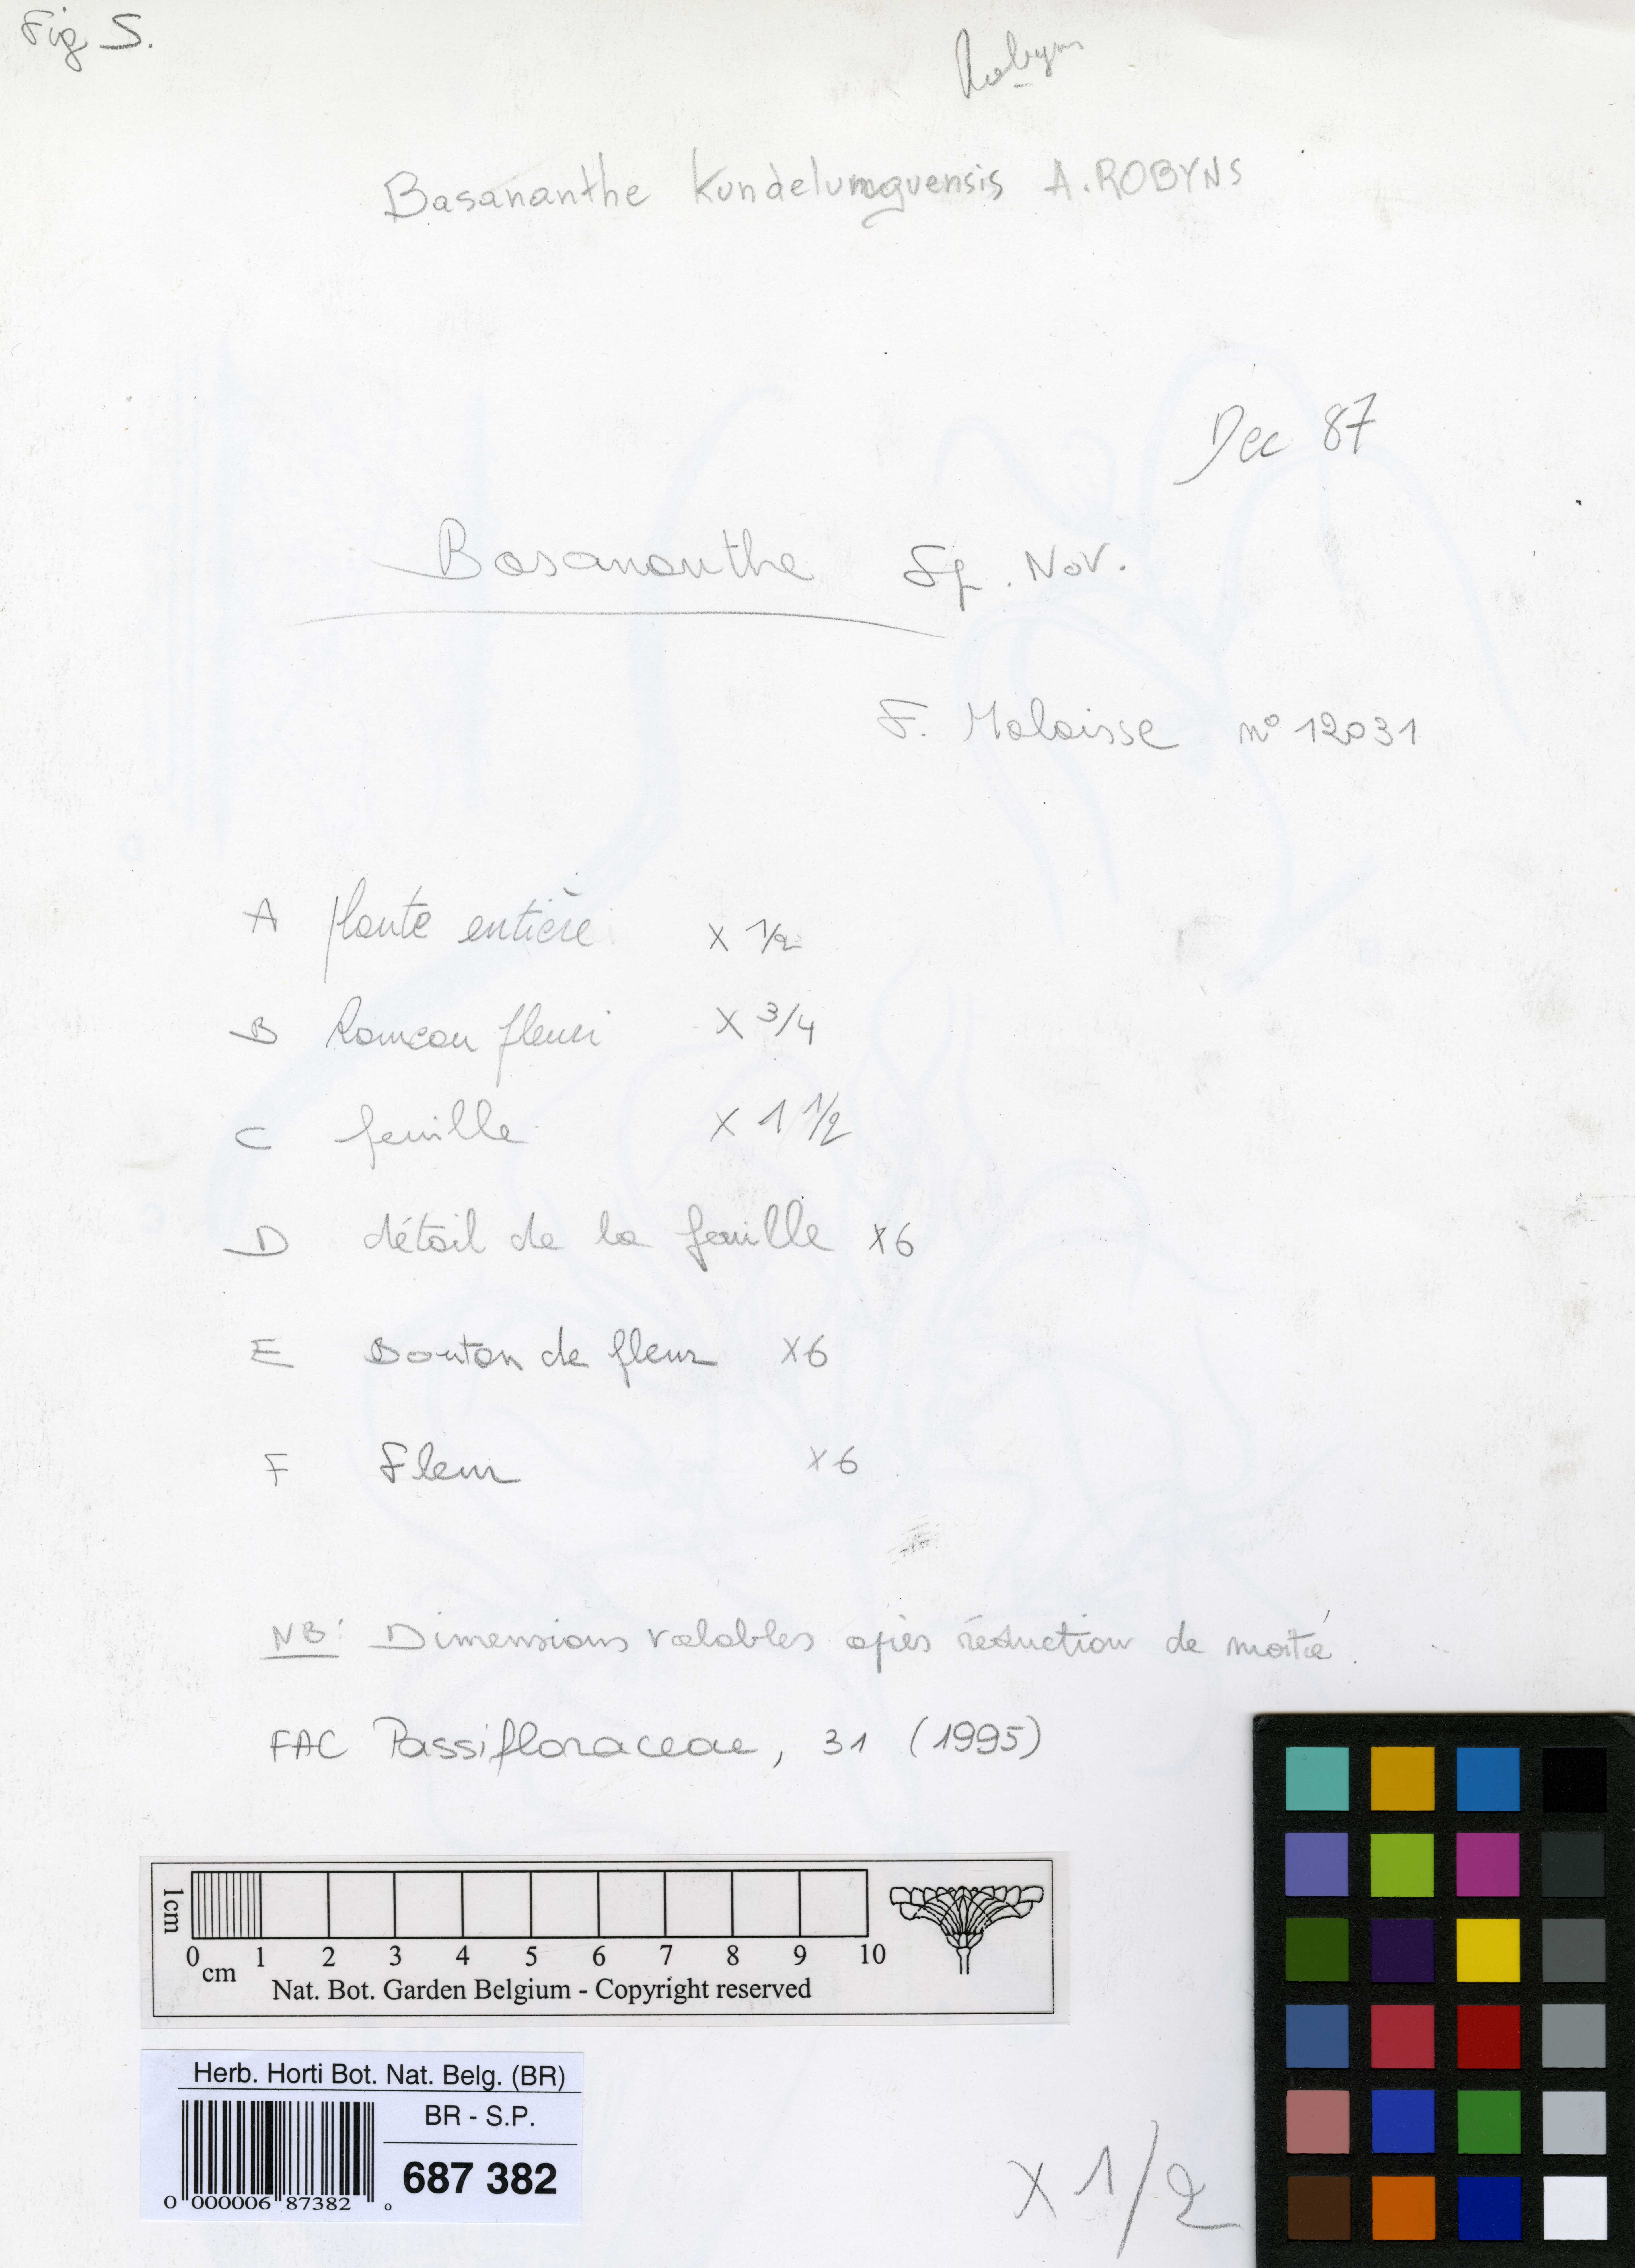 Fig S.
Robyns
Basananthe Kundelunguensis A. ROBYNS
Dec 87
Basananthe Sp. Nov.
F. Malaisse n° 12031
A plante entière x 1/2
B Rameau fleuri x 3/4
C feuille x 1 1/2
D détail de la feuille x6
E Bouton de fleur x6
F Fleur x6
NB: Dimensions valables après réduction de moitié.
FAC Passifloraceae, 31 (1995)
1cm
0 1 2 3 4 5 6 7 8 9 10
cm
Nat. Bot. Garden Belgium - Copyright reserved
Herb. Horti Bot. Nat. Belg. (BR)
BR - S.P.
687 382
0 000006 87382 0
x 1/2